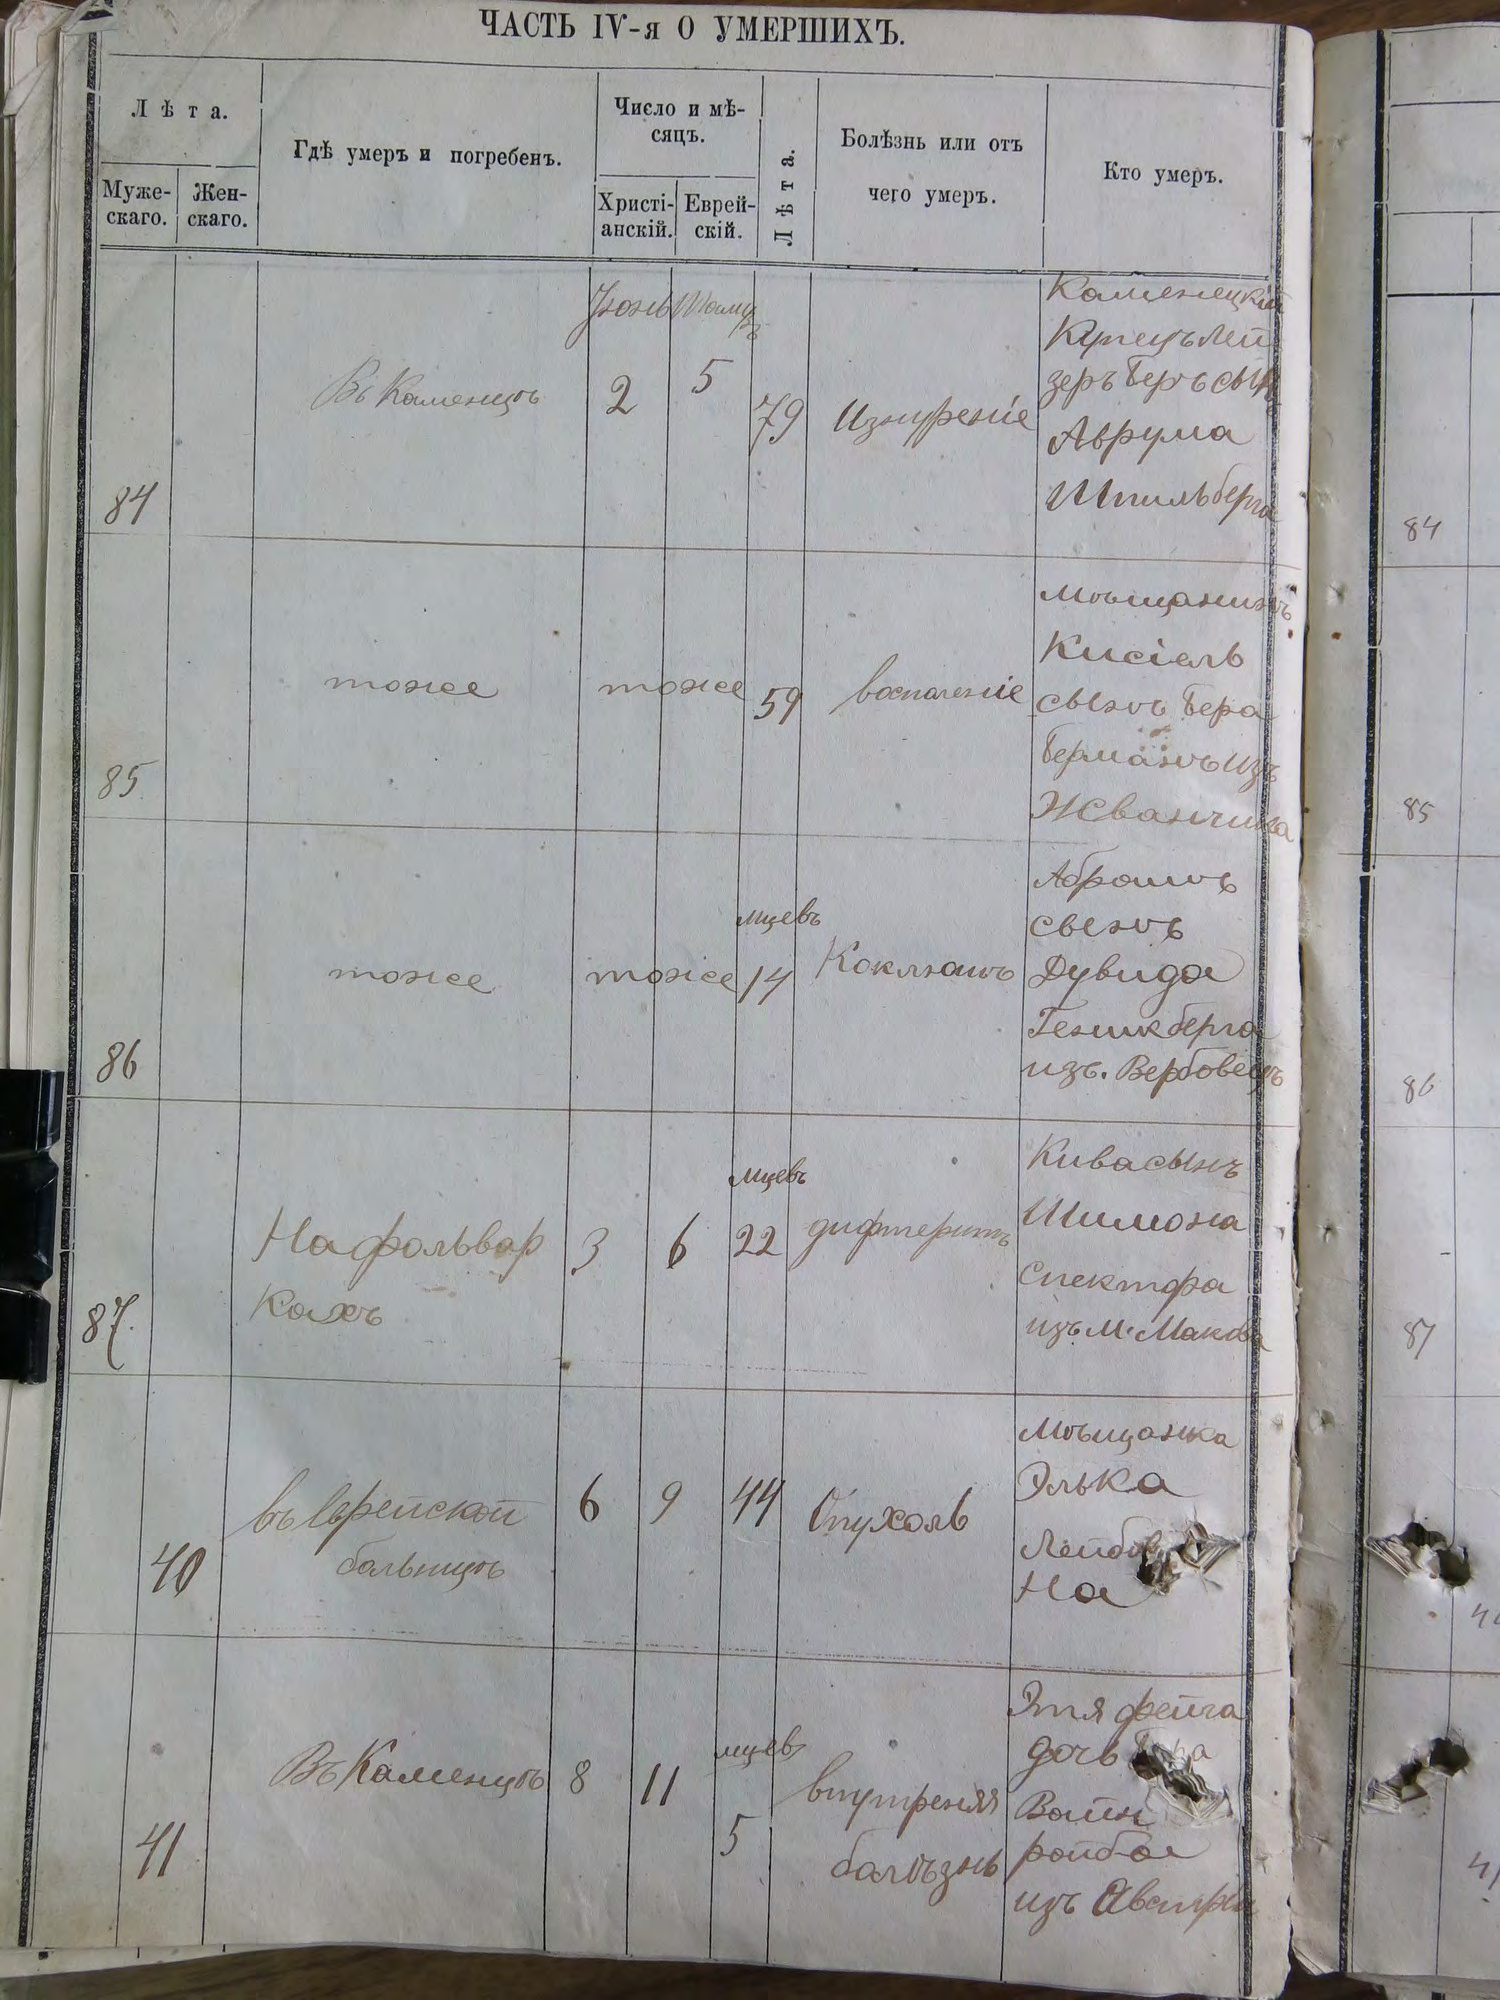 ЧАСТЬ IV-я О УМЕРШИХЪ.
Лѣта.
Муже-
скаго.
Жен-
скаго.
Гдѣ умеръ и погребенъ.
Число и мѣ-
сяцъ.
Христі-
анскій.
Еврей-
скій.
Лѣта.
Болѣзнь или отъ
чего умеръ.
Кто умеръ.
84
Въ Каменцѣ
Іюнь
2
Тамузъ
5
79
Изнуреніе
Каменецкій
Купецъ Лей
зеръ Беръ сынъ
Аврума
Шпильберга
85
тоже
тоже
59
воспаленіе
мѣщанинъ
Кисіель
сынъ Бера
Берманъ изъ
Жванчика
86
тоже
тоже
мцевъ
14
Коклюшъ
Абрамъ
сынъ
Дувида
Геникберга
изъ. Вербовецъ
87.
На фольвар
кахъ
3
6
мцевъ
22
дифтеритъ
Кива сынъ
Шимона
Спектора
изъ м. Макова
40
въ Еврейской
больницѣ
6
9
44
Опухоль
Мѣщанка
Элька
Лейбов
На
41
Въ Каменцѣ
8
11
мцевъ
5
внутреняя
болѣзнь
Этя фейга
дочь
Вайн
ройба
изъ Австріи
84
85
86
87
40
41